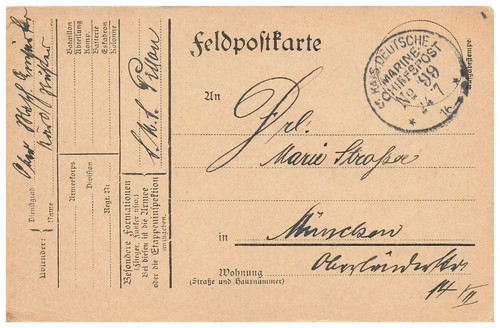 Feldpostkarte
KAIS. DEUTSCHE
MARINE-
SCHIFFSPOST
No 99
24 7
16
An
Frl.
Marie Strasser
in München
Wohnung Oberländerstr
(Straße und Hausnummer)
14/II
Absender:
Dienstgrad
Name
Armeekorps
Division
Regt. Nr.
Bataillon
Abteilung
Komp.
Batterie
Eskadron
Kolonne
Besondere Formationen
(Flieger, Funker usw.)
Bei diesen ist die Armee
oder die Etappeninspektion
anzugeben.
S.M.S.